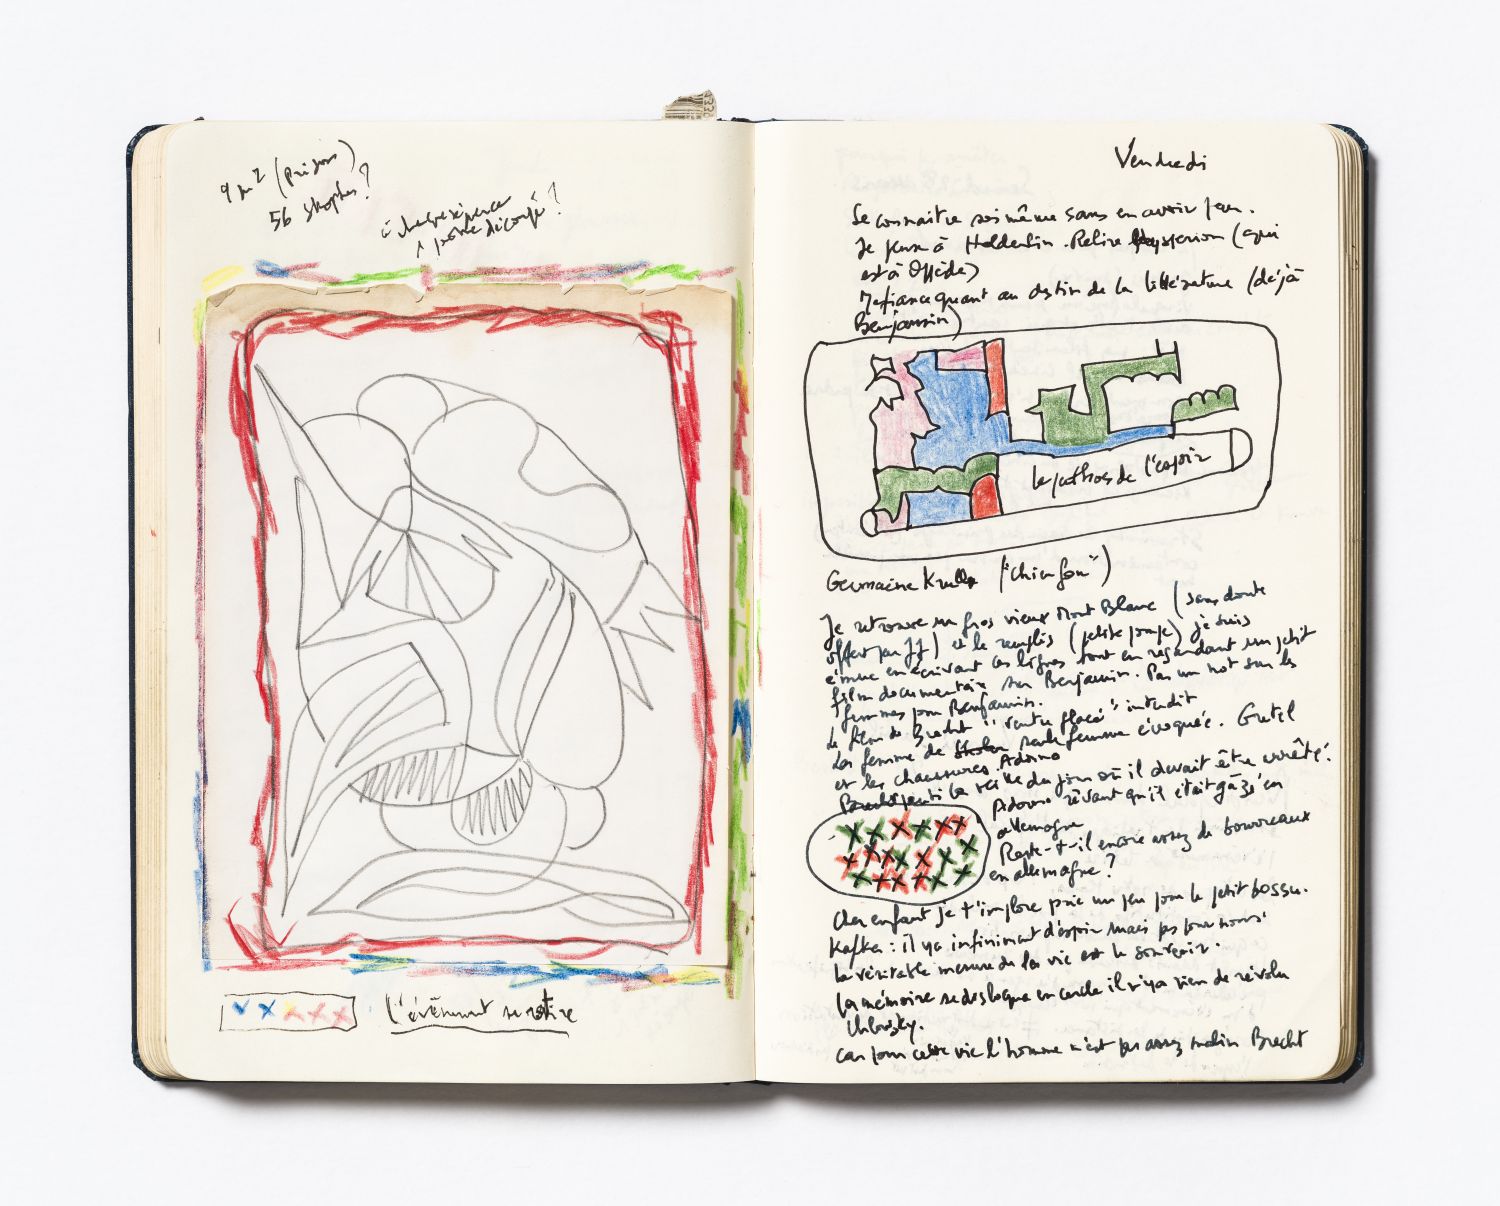 9 m² (prison)
56 strophes ?
à chaque séquence
1 poème découpé ?
L'événement se retire
Vendredi
Se connaître soi même sans en avoir peur.
Je pense à Holderlin. Relire Hypperion (qui
est à Offède)
Méfiance quant au destin de la littérature (déjà
Benjamin)
le pathos de l'espoir
Germaine Krull ("chien fou")
Je retrouve un gros vieux Mont Blanc (sans doute
offert par JJ) et le remplis (petite pompe) je suis
émue en écrivant ces lignes tout en regardant un petit
film documentaire sur Benjamin. Pas un mot sur les
femmes pour Benjamin.
Le film de Brecht "ventre glacé" interdit
La femme de seule femme évoquée. Gretel
et les chaussures. Adorno
Brecht parti la veille du jour où il devait être arrêté.
Adorno rêvant qu'il était gazé en
allemagne
Reste-t-il encore assez de bourreaux
en allemagne ?
Cher enfant je t'implore prie un peu pour le petit bossu.
Kafka : il y a infiniment d'espoir mais pas pour nous.
La véritable mesure de la vie est le souvenir.
La mémoire se disloque en cercle il n'y a rien de révolu
Chlovsky.
Car pour cette vie l'homme n'est pas assez malin Brecht